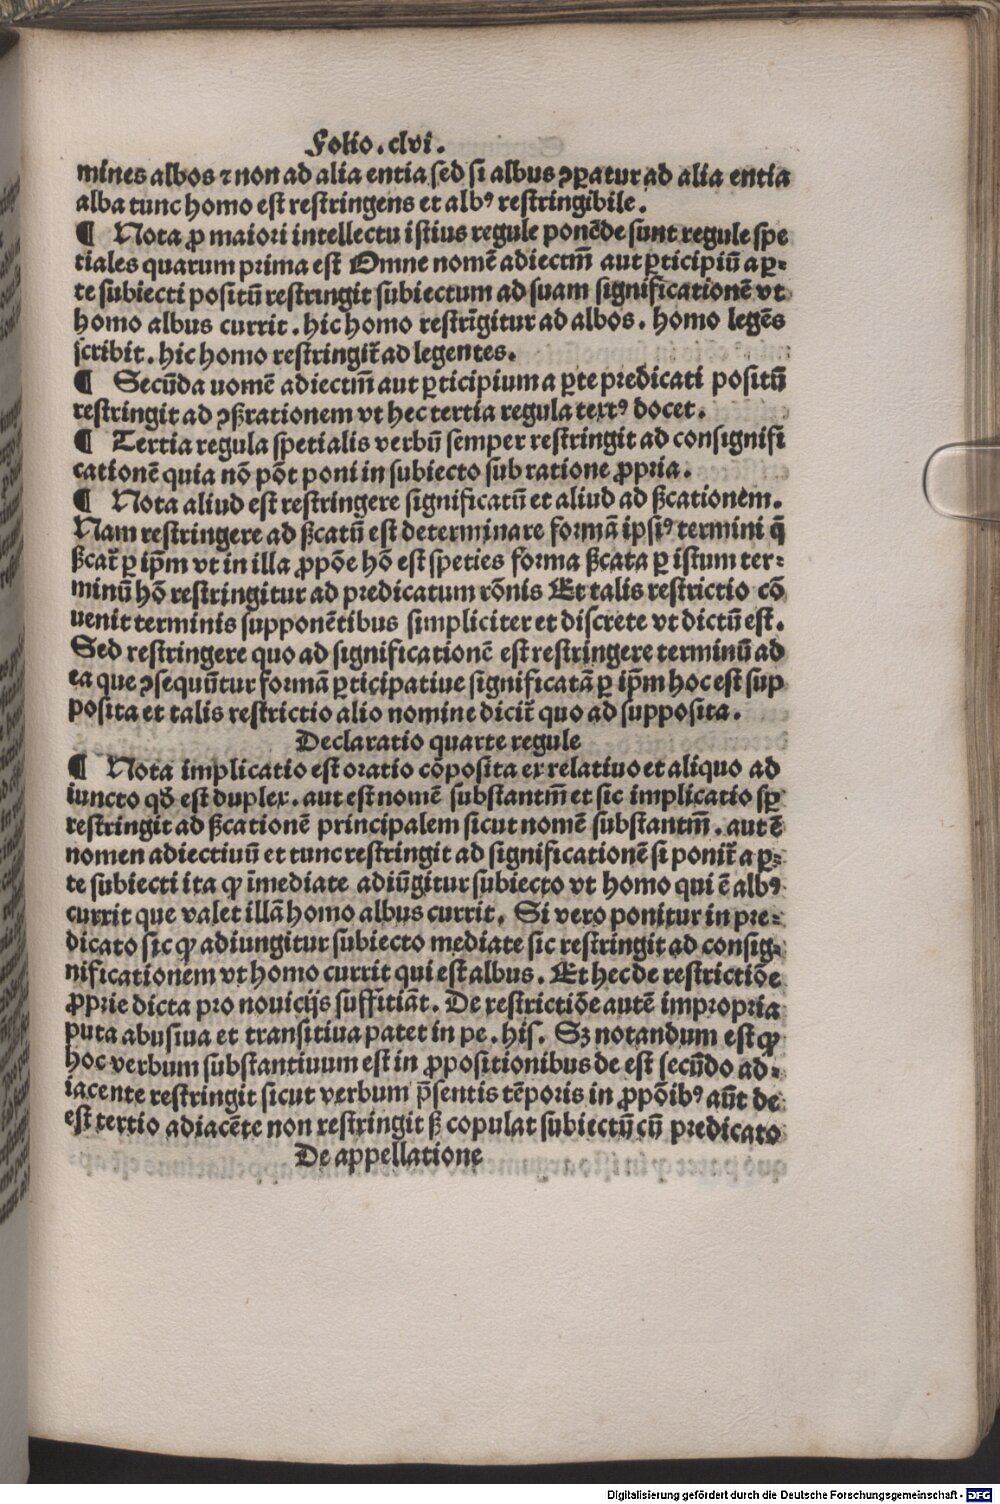 Folio. clvi.
mines albos ⁊ non ad alia entia sed si albus ꝯꝑatur ad alia entia
alba tunc homo est restringens et albꝰ restringibile.
¶ Nota ꝓ maiori intellectu istius regule ponēde sunt regule spe
tiales quarum prima est Omne nomē adiectm̄ aut ꝑticipiū a ꝑ-
te subiecti positū restringit subiectum ad suam significationē vt
homo albus currit. hic homo restrīgitur ad albos. homo legēs
scribit. hic homo restringit᷑ ad legentes.
¶ Secūda uomē adiectm̄ aut ꝑticipium a ꝑte predicati positū
restringit ad ꝯßrationem vt hec tertia regula textꝰ docet.
¶ Tertia regula spetialis verbū semper restringit ad consignifi
cationē quia nō pōt poni in subiecto sub ratione ꝓpria.
¶ Nota aliud est restringere significatū et aliud ad ßcationem.
Nam restringere ad ßcatū est determinare formā ipsiꝰ termini q̄
ßcat᷑ ꝑ ip̄m vt in illa ꝓpōe hō est speties forma ßcata ꝑ istum ter-
minū hō restringitur ad predicatum rōnis Et talis restrictio cō
uenit terminis supponētibus simpliciter et discrete vt dictū est.
Sed restringere quo ad significationē est restringere terminū ad
ea que ꝯsequūtur formā ꝑticipatiue significatā ꝑ ip̄m hoc est sup
posita et talis restrictio alio nomine dicit᷑ quo ad supposita.
Declaratio quarte regule
¶ Nota implicatio est oratio cōposita ex relatiuo et aliquo ad
iuncto qđ est duplex. aut est nomē substantm̄ et sic implicatio sꝑ
restringit ad ßcationē principalem sicut nomē substantm̄. aut ē
nomen adiectiuū et tunc restringit ad significationē si ponit᷑ a ꝑ-
te subiecti ita ꝙ īmediate adiūgitur subiecto vt homo qui ē albꝰ
currit que valet illā homo albus currit. Si vero ponitur in pre-
dicato sic ꝙ adiungitur subiecto mediate sic restringit ad consig-
nificationem vt homo currit qui est albus. Et hec de restrictiōe
ꝓprie dicta pro nouicijs suffitiāt. De restrictiōe autē impropria
puta abusiua et transitiua patet in pe. his. Sꝫ notandum est ꝙ
hoc verbum substantiuum est in ꝓpositionibus de est secūdo ad-
iacente restringit sicut verbum p̄sentis tēporis in ꝓpōibꝰ aūt de
est tertio adiacēte non restringit ß copulat subiectū cū predicato
De appellatione
Digitalisierung gefördert durch die Deutsche Forschungsgemeinschaft - DFG